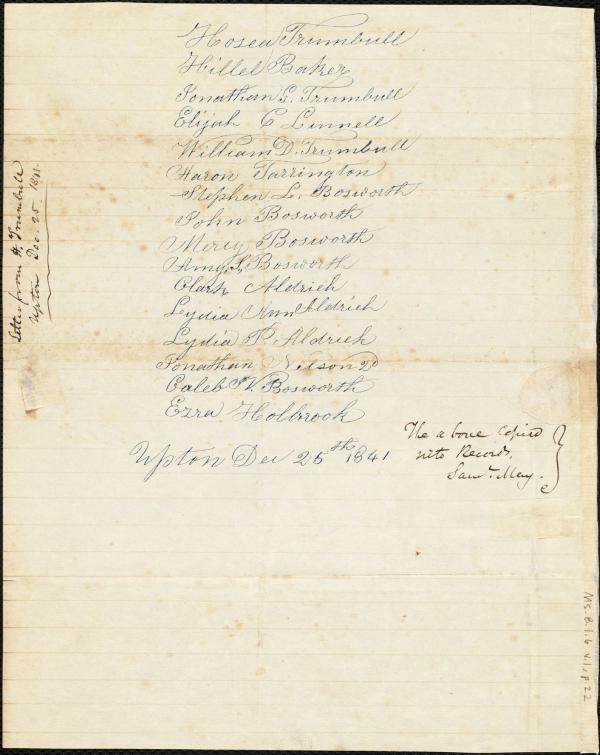 Hosea Trumbull
Hillel Baker
Jonathan G. Trumbull
Elijah C Linnell
William D. Trumbull
Aaron Tarrington
Stephen L. Bosworth
John Bosworth
Mercy Bosworth
Amy S. Bosworth
Clark Aldrich
Lydia Ann Aldrich
Lydia P Aldrich
Jonathan Nelson 2d
Caleb V. Bosworth
Ezra Holbrook
Upton Dec 25th 1841
The above copied
into Records.
Saml. May.
Letter from H. Trumbull
Upton Dec. 25. 1841.
Ms. B. 1. 6 v. 1, p. 22